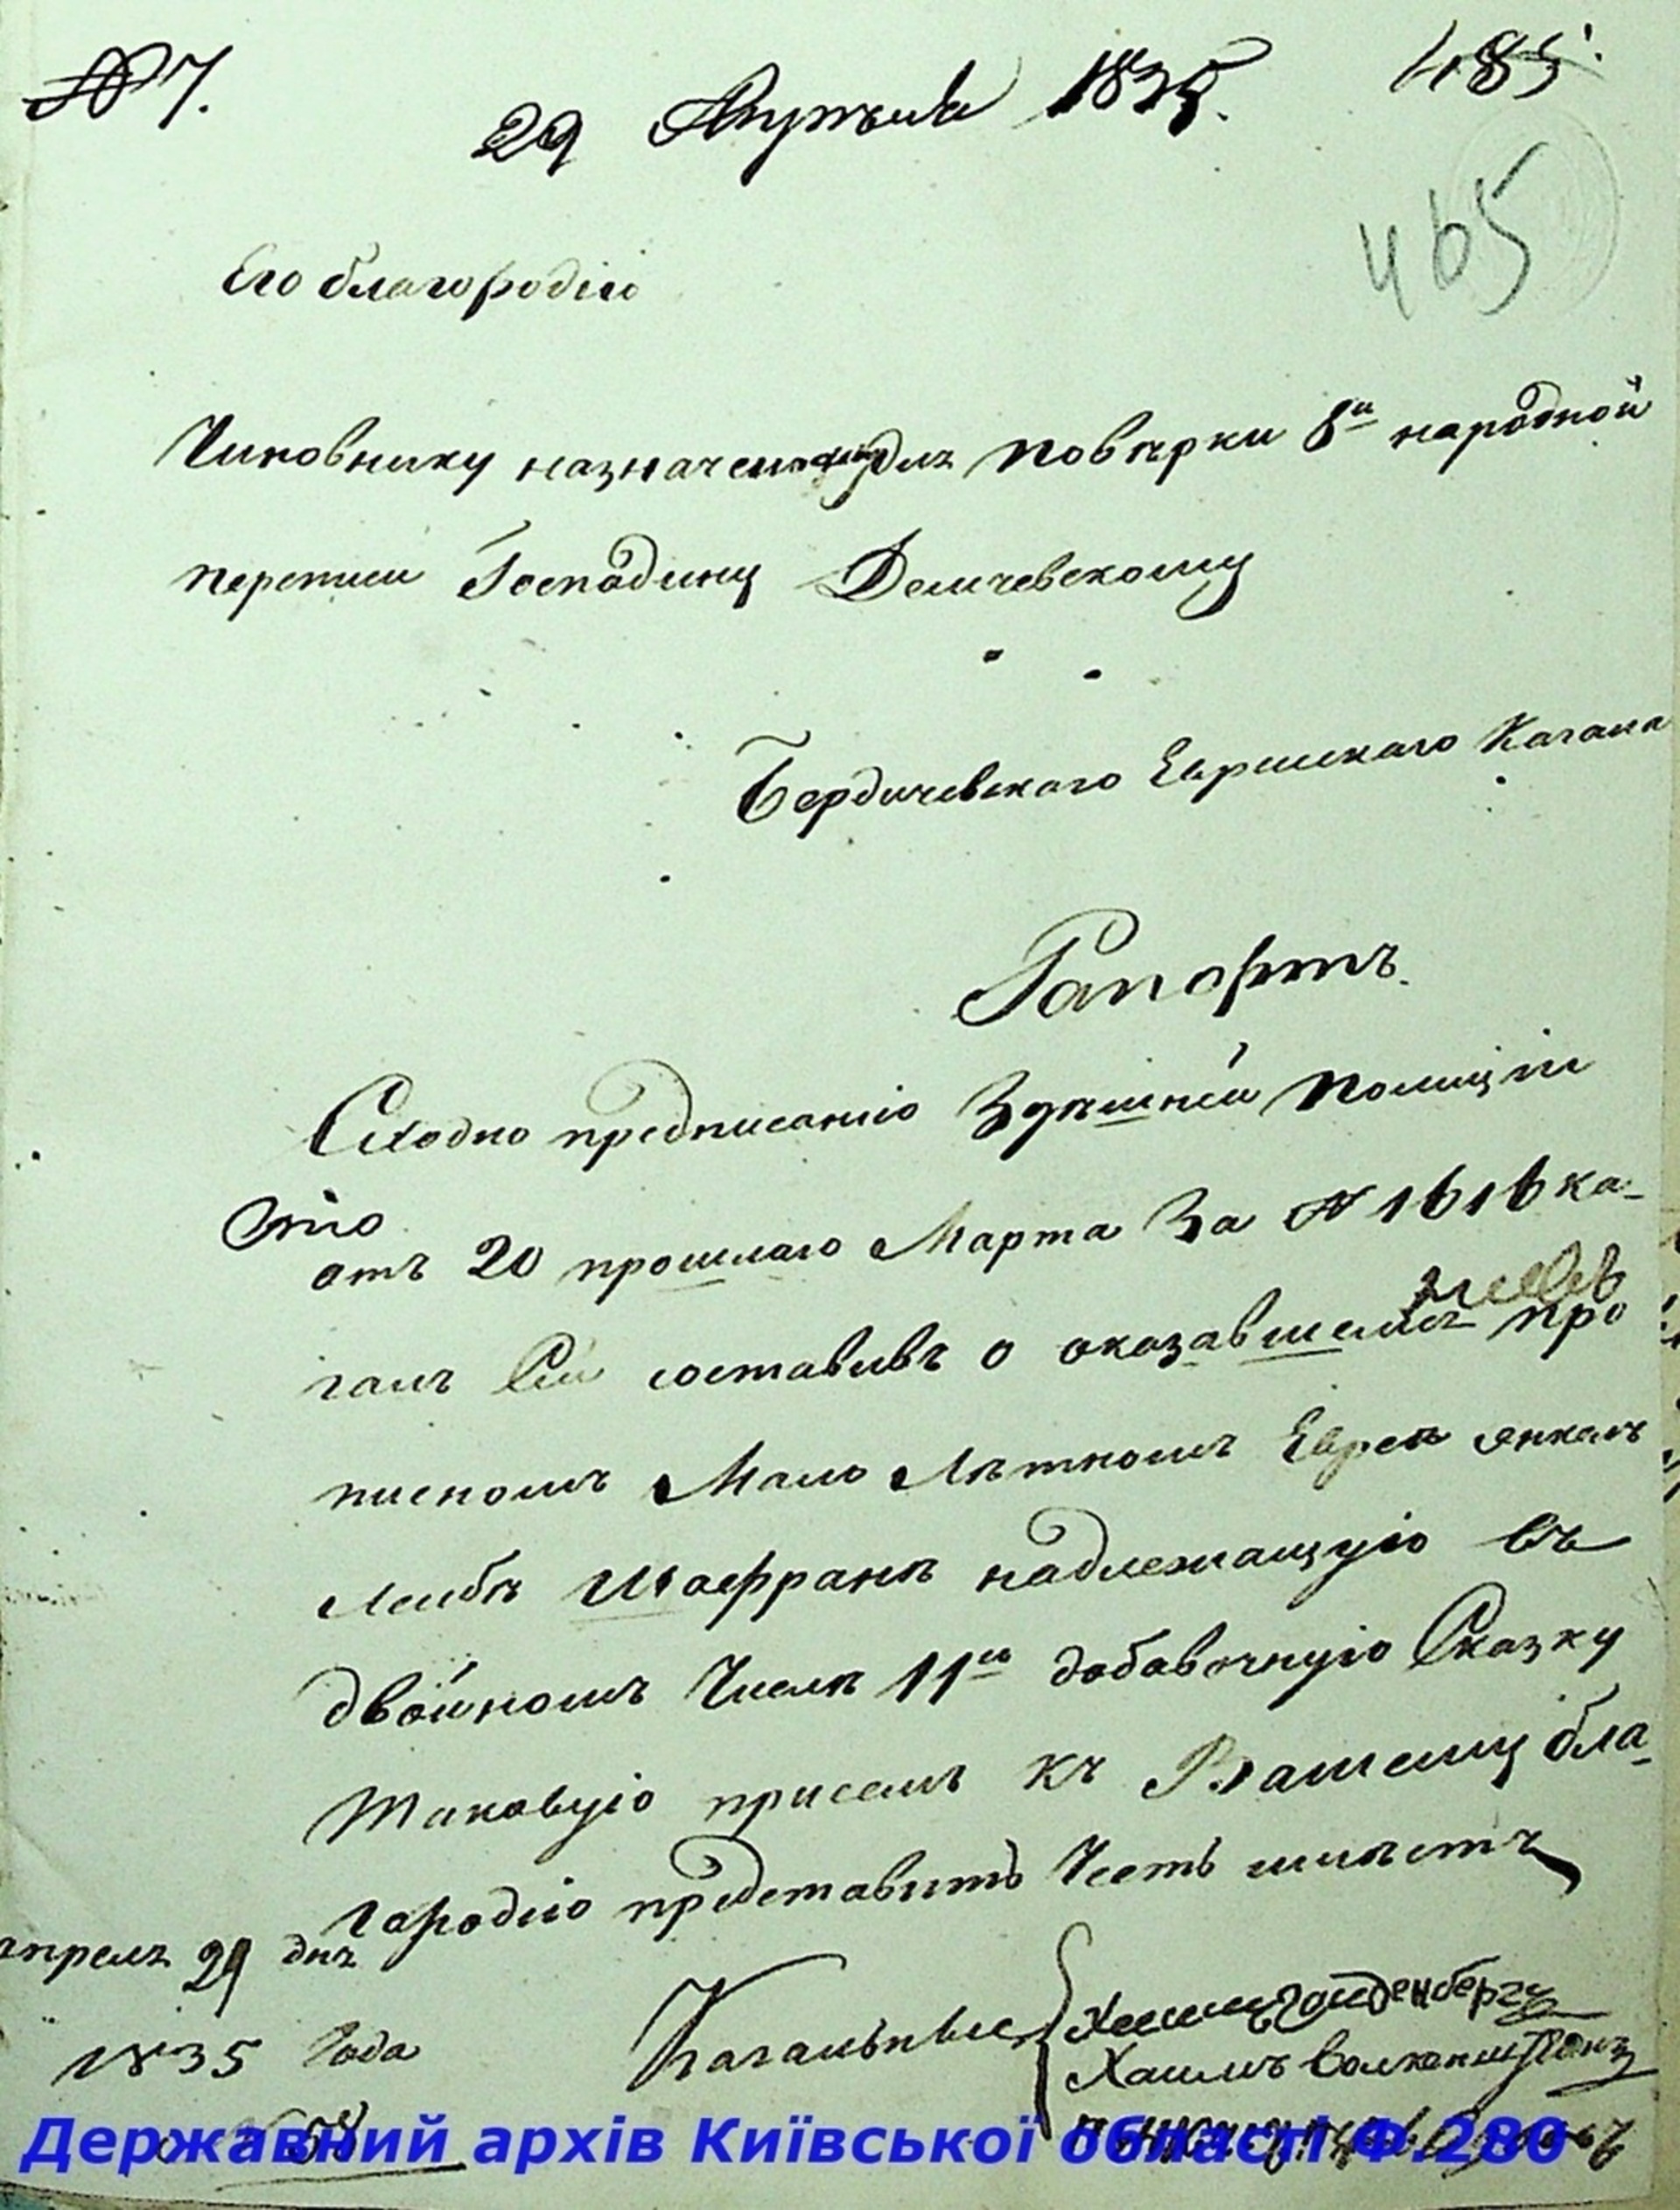 № 7.
485.
29 Апреля 1835.
465
Его благородію
Чиновнику назначенному для поверки 8й народной
переписи Господину Демчевскому
Бердичевского Еврейскаго Кагала
Рапортъ.
Сходно предписанію Здѣшней полиціи
отъ 20 прошлаго Марта За № 1616 ка-
галъ Сей составивъ о оказавшемъ про
писномъ Мало Лѣтномъ Евреѣ янкелъ
Лейбѣ Шафранѣ надлежащую въ
двойномъ Числѣ 11ю добавочную Сказку
Таковую присемъ къ Вашему бла-
городію представить Честь имѣетъ
апреля 29 дня
1835 Года
Кагальные
Державний архів Київської області Ф.280